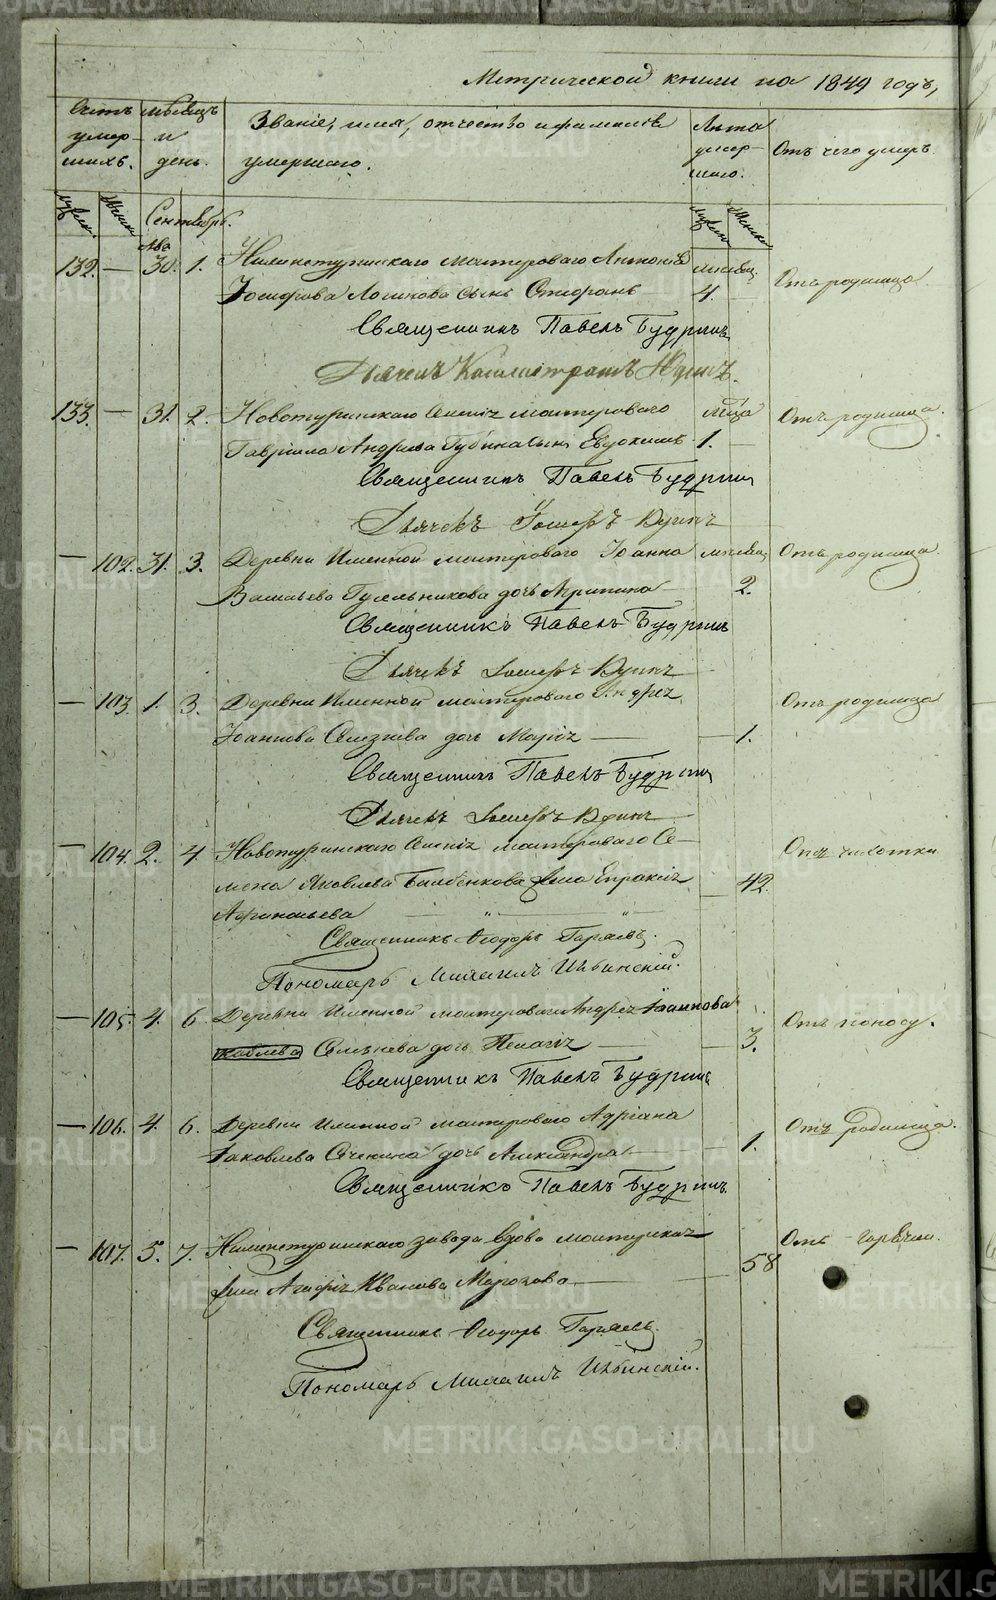 Метрической книги на 1849 годъ,
Счетъ умер-шихъ.
мѣсяцъ и день.
Званіе, имя, отчество и фамилія умершаго.
Лѣта умер-шаго.
Отъ чего умеръ.
Сентябрь.
132. — 30. 1. Нижнетуринскаго мастероваго Антонія мѣсяц. Отъ родимца.
Іосифова Логинова сынъ Стефанъ 4.
Священникъ Павелъ Будринъ
Дьячекъ Каллистратъ
133. — 31. 2. Новотуринскаго селенія мастероваго Отъ родимца.
Гавріила Андреева Губина сынъ Евдокимъ 1.
Священникъ Павелъ Будринъ
Дьячекъ Іосифъ
— 102. 31. 3. Деревни Именной мастероваго Іоанна месяц. Отъ родимца.
Васильева дочь Агрипина 2.
Священникъ Павелъ Будринъ
Дьячекъ Іосифъ
— 103. 1. 3. Деревни Именной мастероваго Андрея Отъ родимца
Іоаннова Селезнева дочь Марія — 1.
Священникъ Павелъ Будринъ
Дьячекъ Іосифъ
— 104. 2. 4. Новотуринскаго селенія мастероваго Се- Отъ чахотки
мена Яковлева жена Евпраксія 42.
Афанасьева
Священникъ Ѳеодоръ
Пономарь Михаилъ
— 105. 4. 6. Деревни Именной мастероваго Андрея Іоаннова Отъ поносу.
Селезнева дочь Пелагія — 3.
Священникъ Павелъ Будринъ
— 106. 4. 6. Деревни Именной мастероваго Адріана Отъ родимца.
Іаковлева дочь Александра 1.
Священникъ Павелъ Будринъ.
— 107. 5. 7. Нижнетуринскаго завода вдова мастерская Отъ горячки.
жена Агафія Иванова Морозова — 58
Священникъ Ѳеодоръ
Пономарь Михаилъ
METRIKI.GASO-URAL.RU